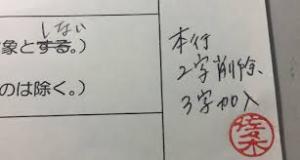 しない
象とする。)
のは除く。)
本行
2字削除、
3字加入